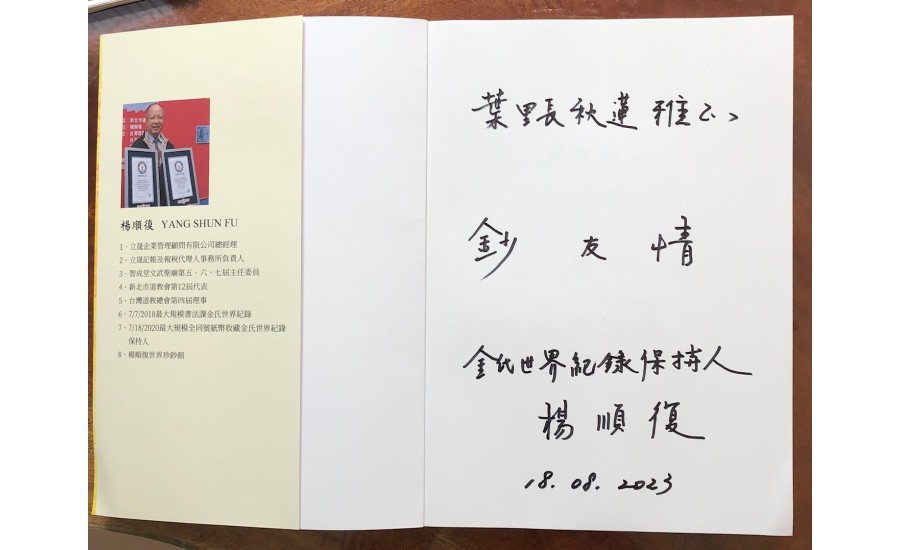 楊順復 YANG SHUN FU
1、立晟企業管理顧問有限公司總經理
2、立晟記帳及報稅代理人事務所負責人
3、智成堂文武聖廟第五、六、七屆主任委員
4、新北市道教會第12屆代表
5、台灣道教總會第四屆理事
6、7/7/2018最大規模書法課金氏世界紀錄
7、7/18/2020最大規模全同號紙幣收藏金氏世界紀錄
保持人
8、楊順復世界珍鈔館
葉里長秋蓮 雅正
鈔 友 情
金氏世界紀錄保持人
楊 順 復
18. 08. 2023